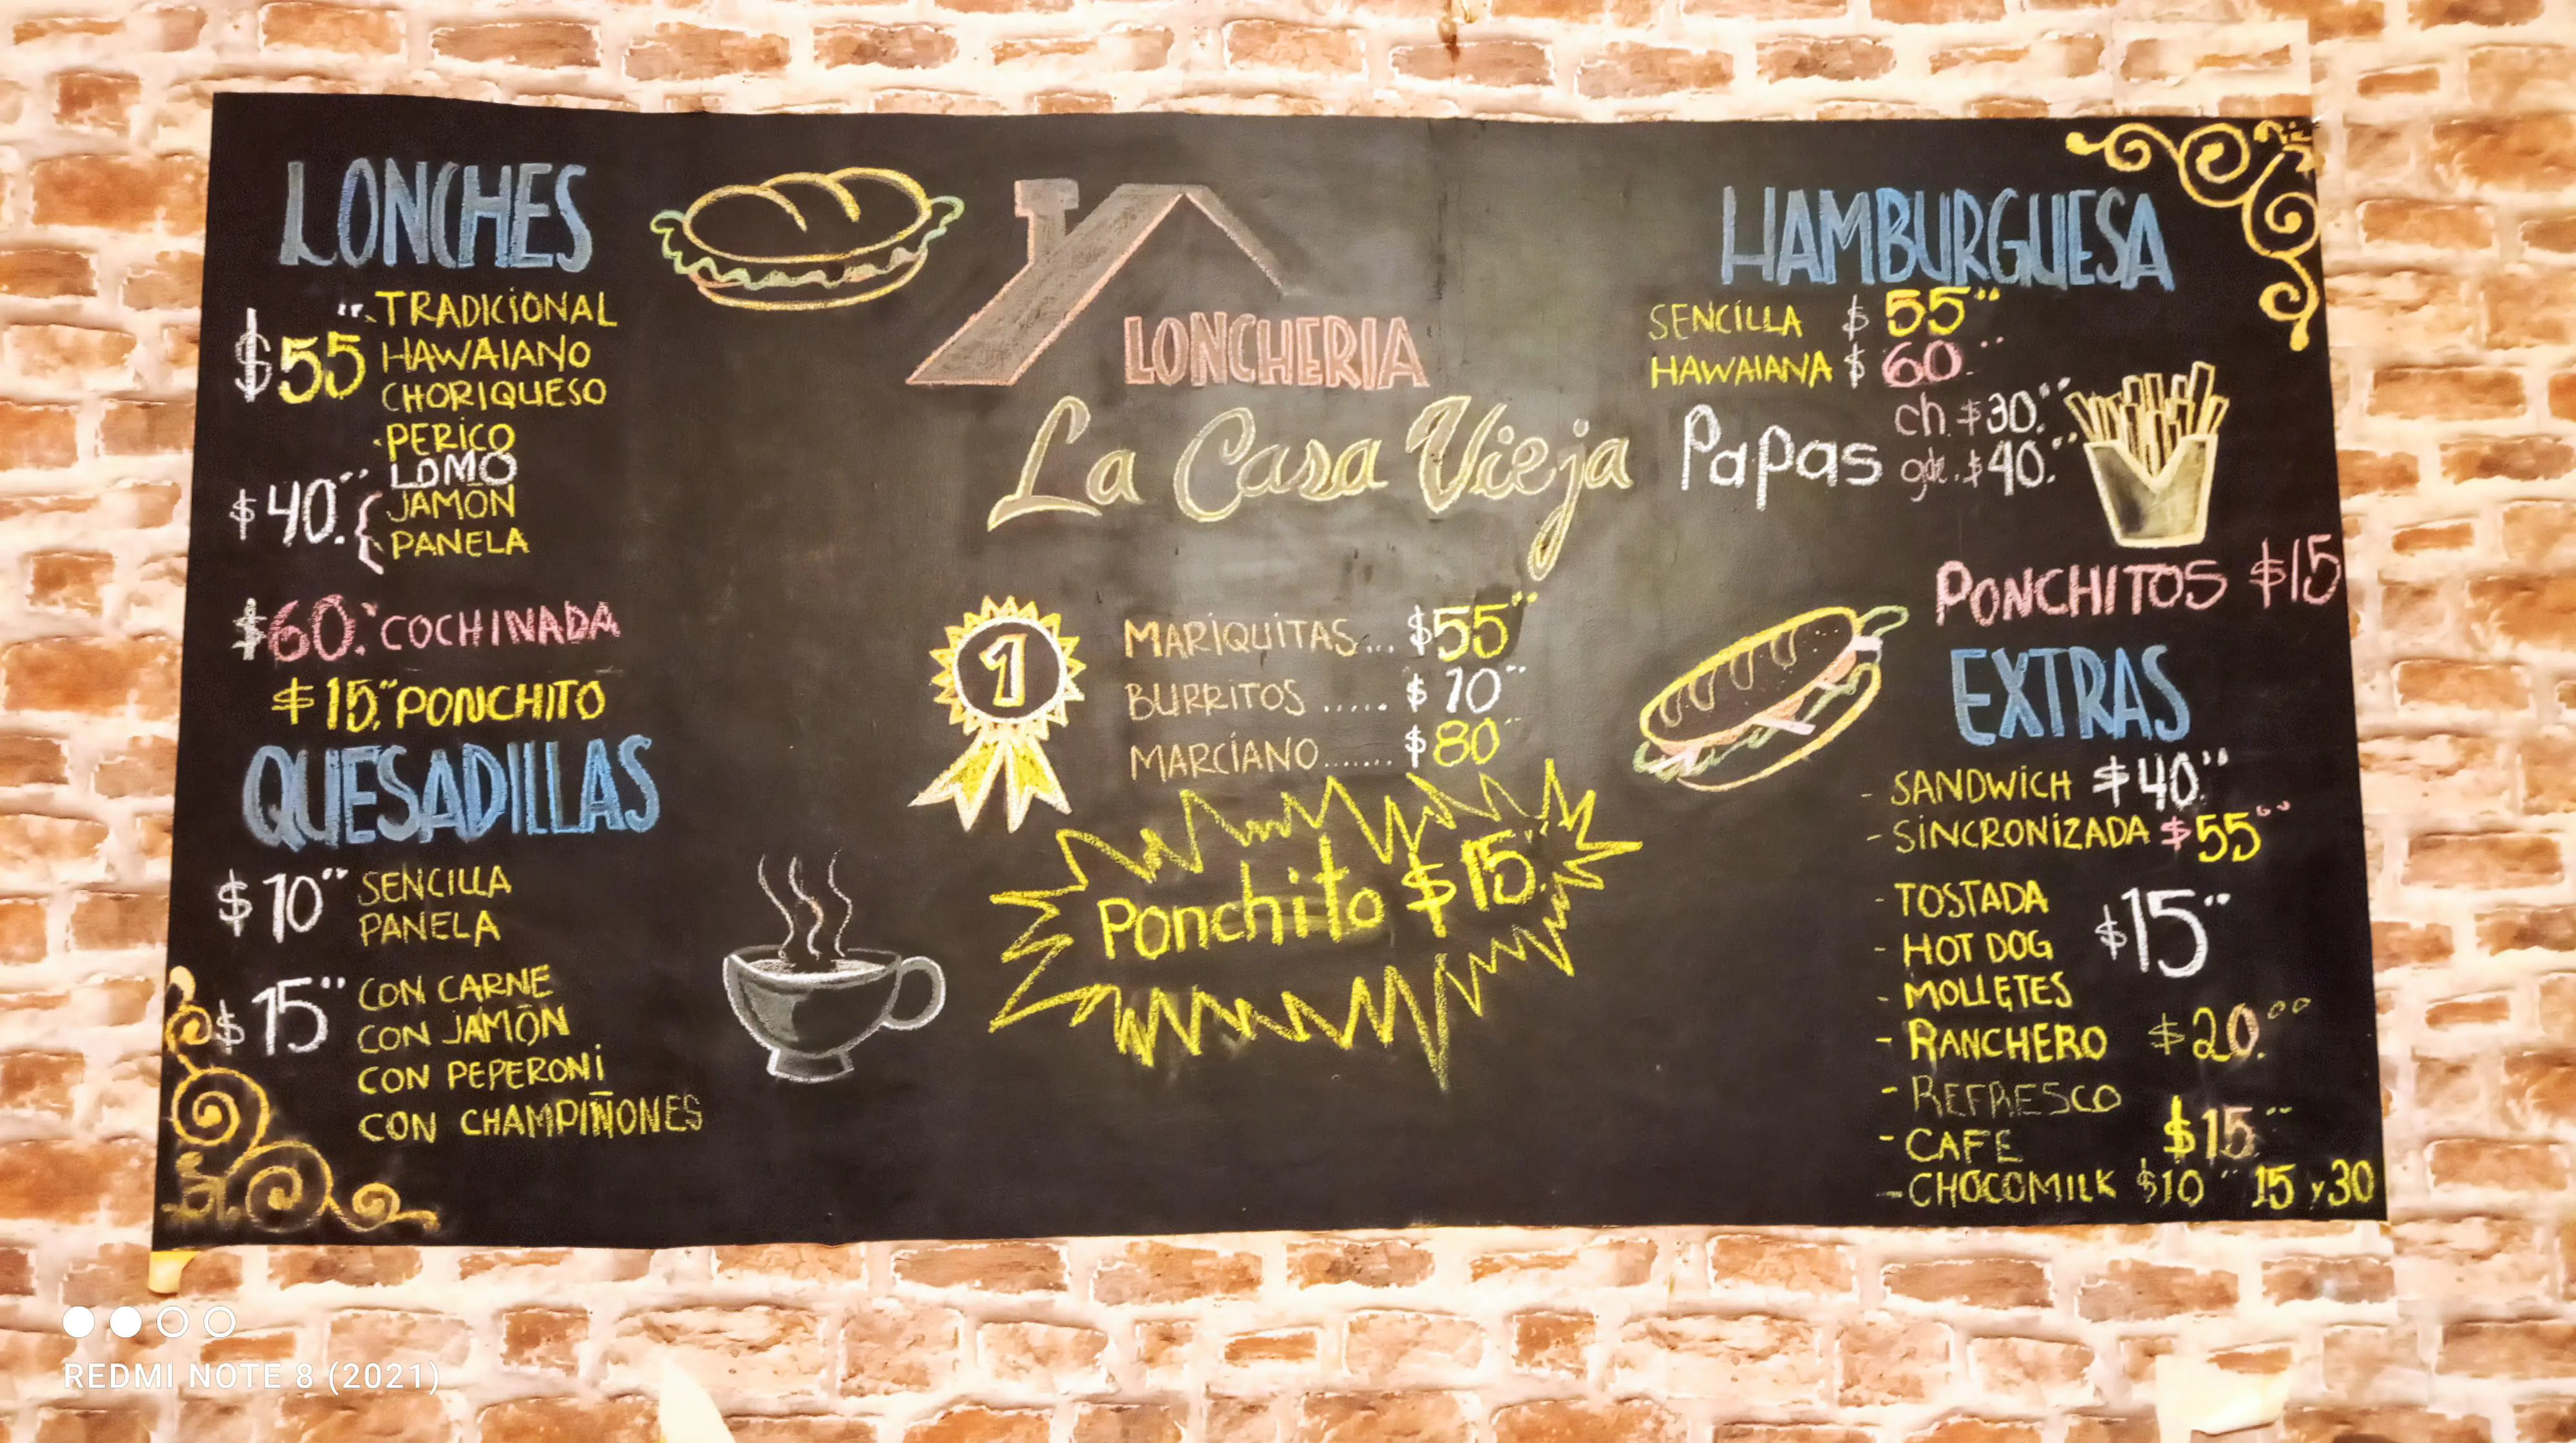 LONCHES
TRADICIONAL
$55 HAWAIANO
CHORIQUESO
PERICO
LOMO
$40. JAMÓN
PANELA
$60. COCHINADA
$15. PONCHITO
QUESADILLAS
$10 SENCILLA
PANELA
$15 CON CARNE
CON JAMÓN
CON PEPERONI
CON CHAMPIÑONES
LONCHERIA
La Casa Vieja
1
MARIQUITAS... $55
BURRITOS ..... $10
MARCIANO....... $80
Ponchito $15.
HAMBURGUESA
SENCILLA $55
HAWAIANA $60
Papas ch. $30.
gde. $40.
PONCHITOS $15
EXTRAS
- SANDWICH $40.
- SINCRONIZADA $55
- TOSTADA
- HOT DOG $15
- MOLLETES
- RANCHERO $20.00
- REFRESCO
- CAFE $15
- CHOCOMILK $10 15 y 30
REDMI NOTE 8 (2021)